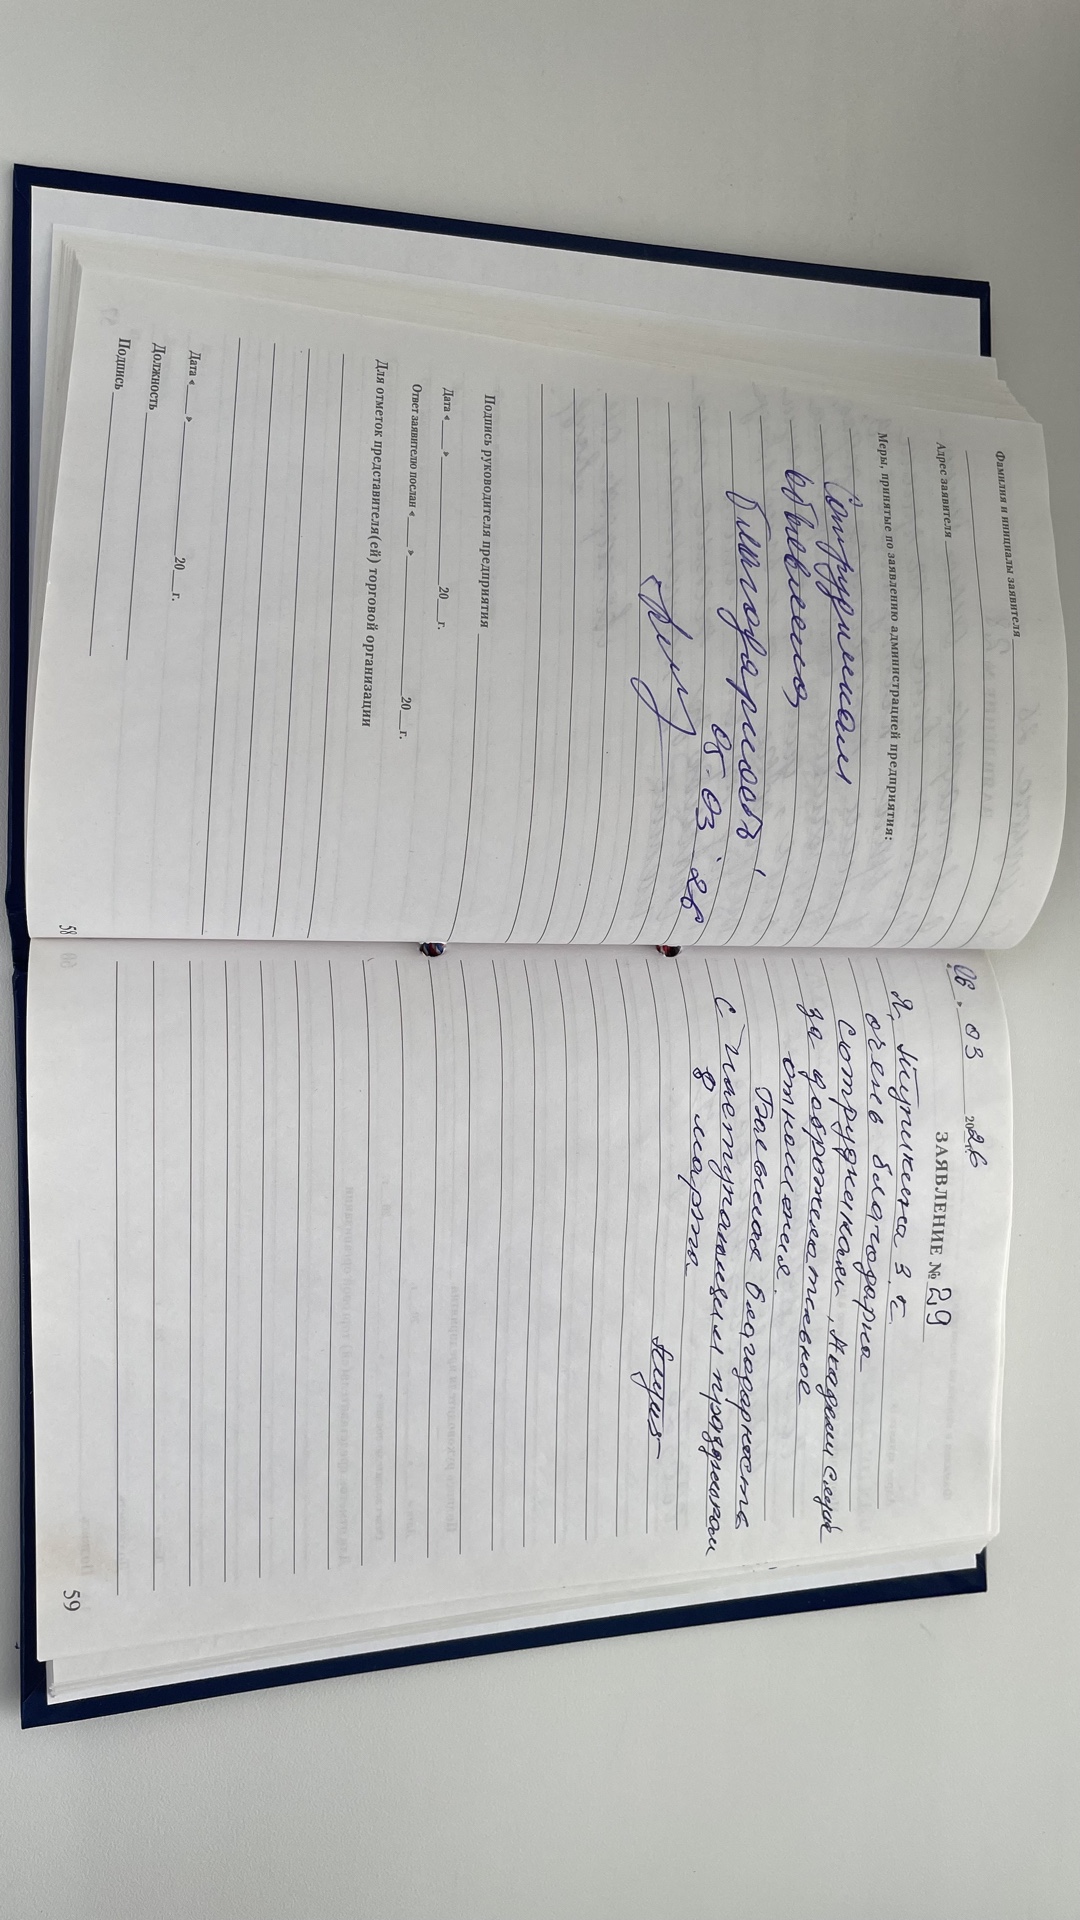 Фамилия и инициалы заявителя
Адрес заявителя
Меры, принятые по заявлению администрацией предприятия:
Сотрудникам
объявлена
благодарность!
05.03.26
Подпись руководителя предприятия
Дата « » 20 г.
Ответ заявителю послан « » 20 г.
Для отметок представителя(ей) торговой организации
Дата « » 20 г.
Должность
Подпись
58
«06» 03 2026
ЗАЯВЛЕНИЕ № 29
Я, Тупикина З.
очень благодарна
сотрудникам,
за доброжелательное
отношения.
Большая благодарность
С наступающим праздником
8 марта
59